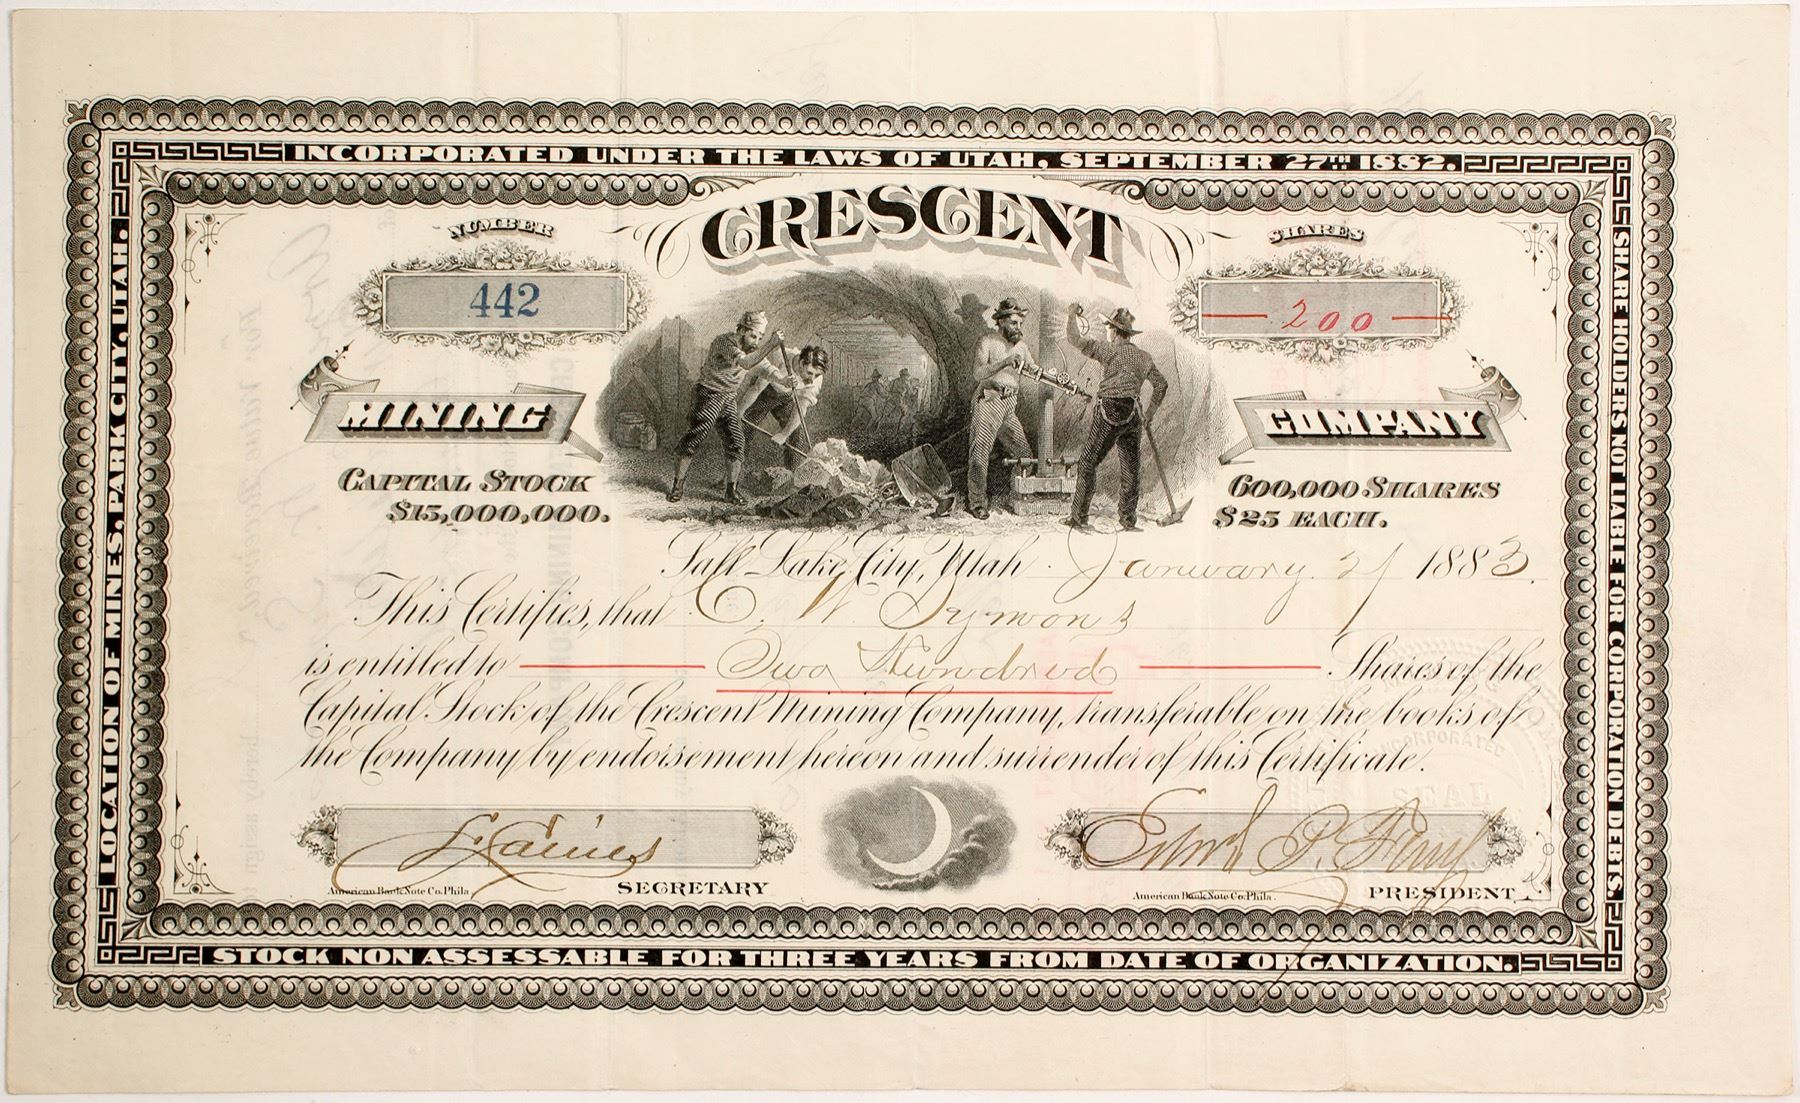 INCORPORATED UNDER THE LAWS OF UTAH, SEPTEMBER 27TH 1882.
LOCATION OF MINES, PARK CITY, UTAH.
SHARE HOLDERS NOT LIABLE FOR CORPORATION DEBTS.
CRESCENT
NUMBER
442
SHARES
200
MINING
COMPANY
CAPITAL STOCK
$15,000,000.
600,000 SHARES
$25 EACH.
Salt Lake City, Utah January 21 1883
This Certifies, that C. W. Symons
is entitled to Two Hundred Shares of the
Capital Stock of the Crescent Mining Company, transferable on the books of
the Company by endorsement hereon and surrender of this Certificate.
INCORPORATED
SEAL
Edwd P. Ferry
American Bank Note Co. Phila.
SECRETARY
American Bank Note Co. Phila.
PRESIDENT
STOCK NON ASSESSABLE FOR THREE YEARS FROM DATE OF ORGANIZATION.